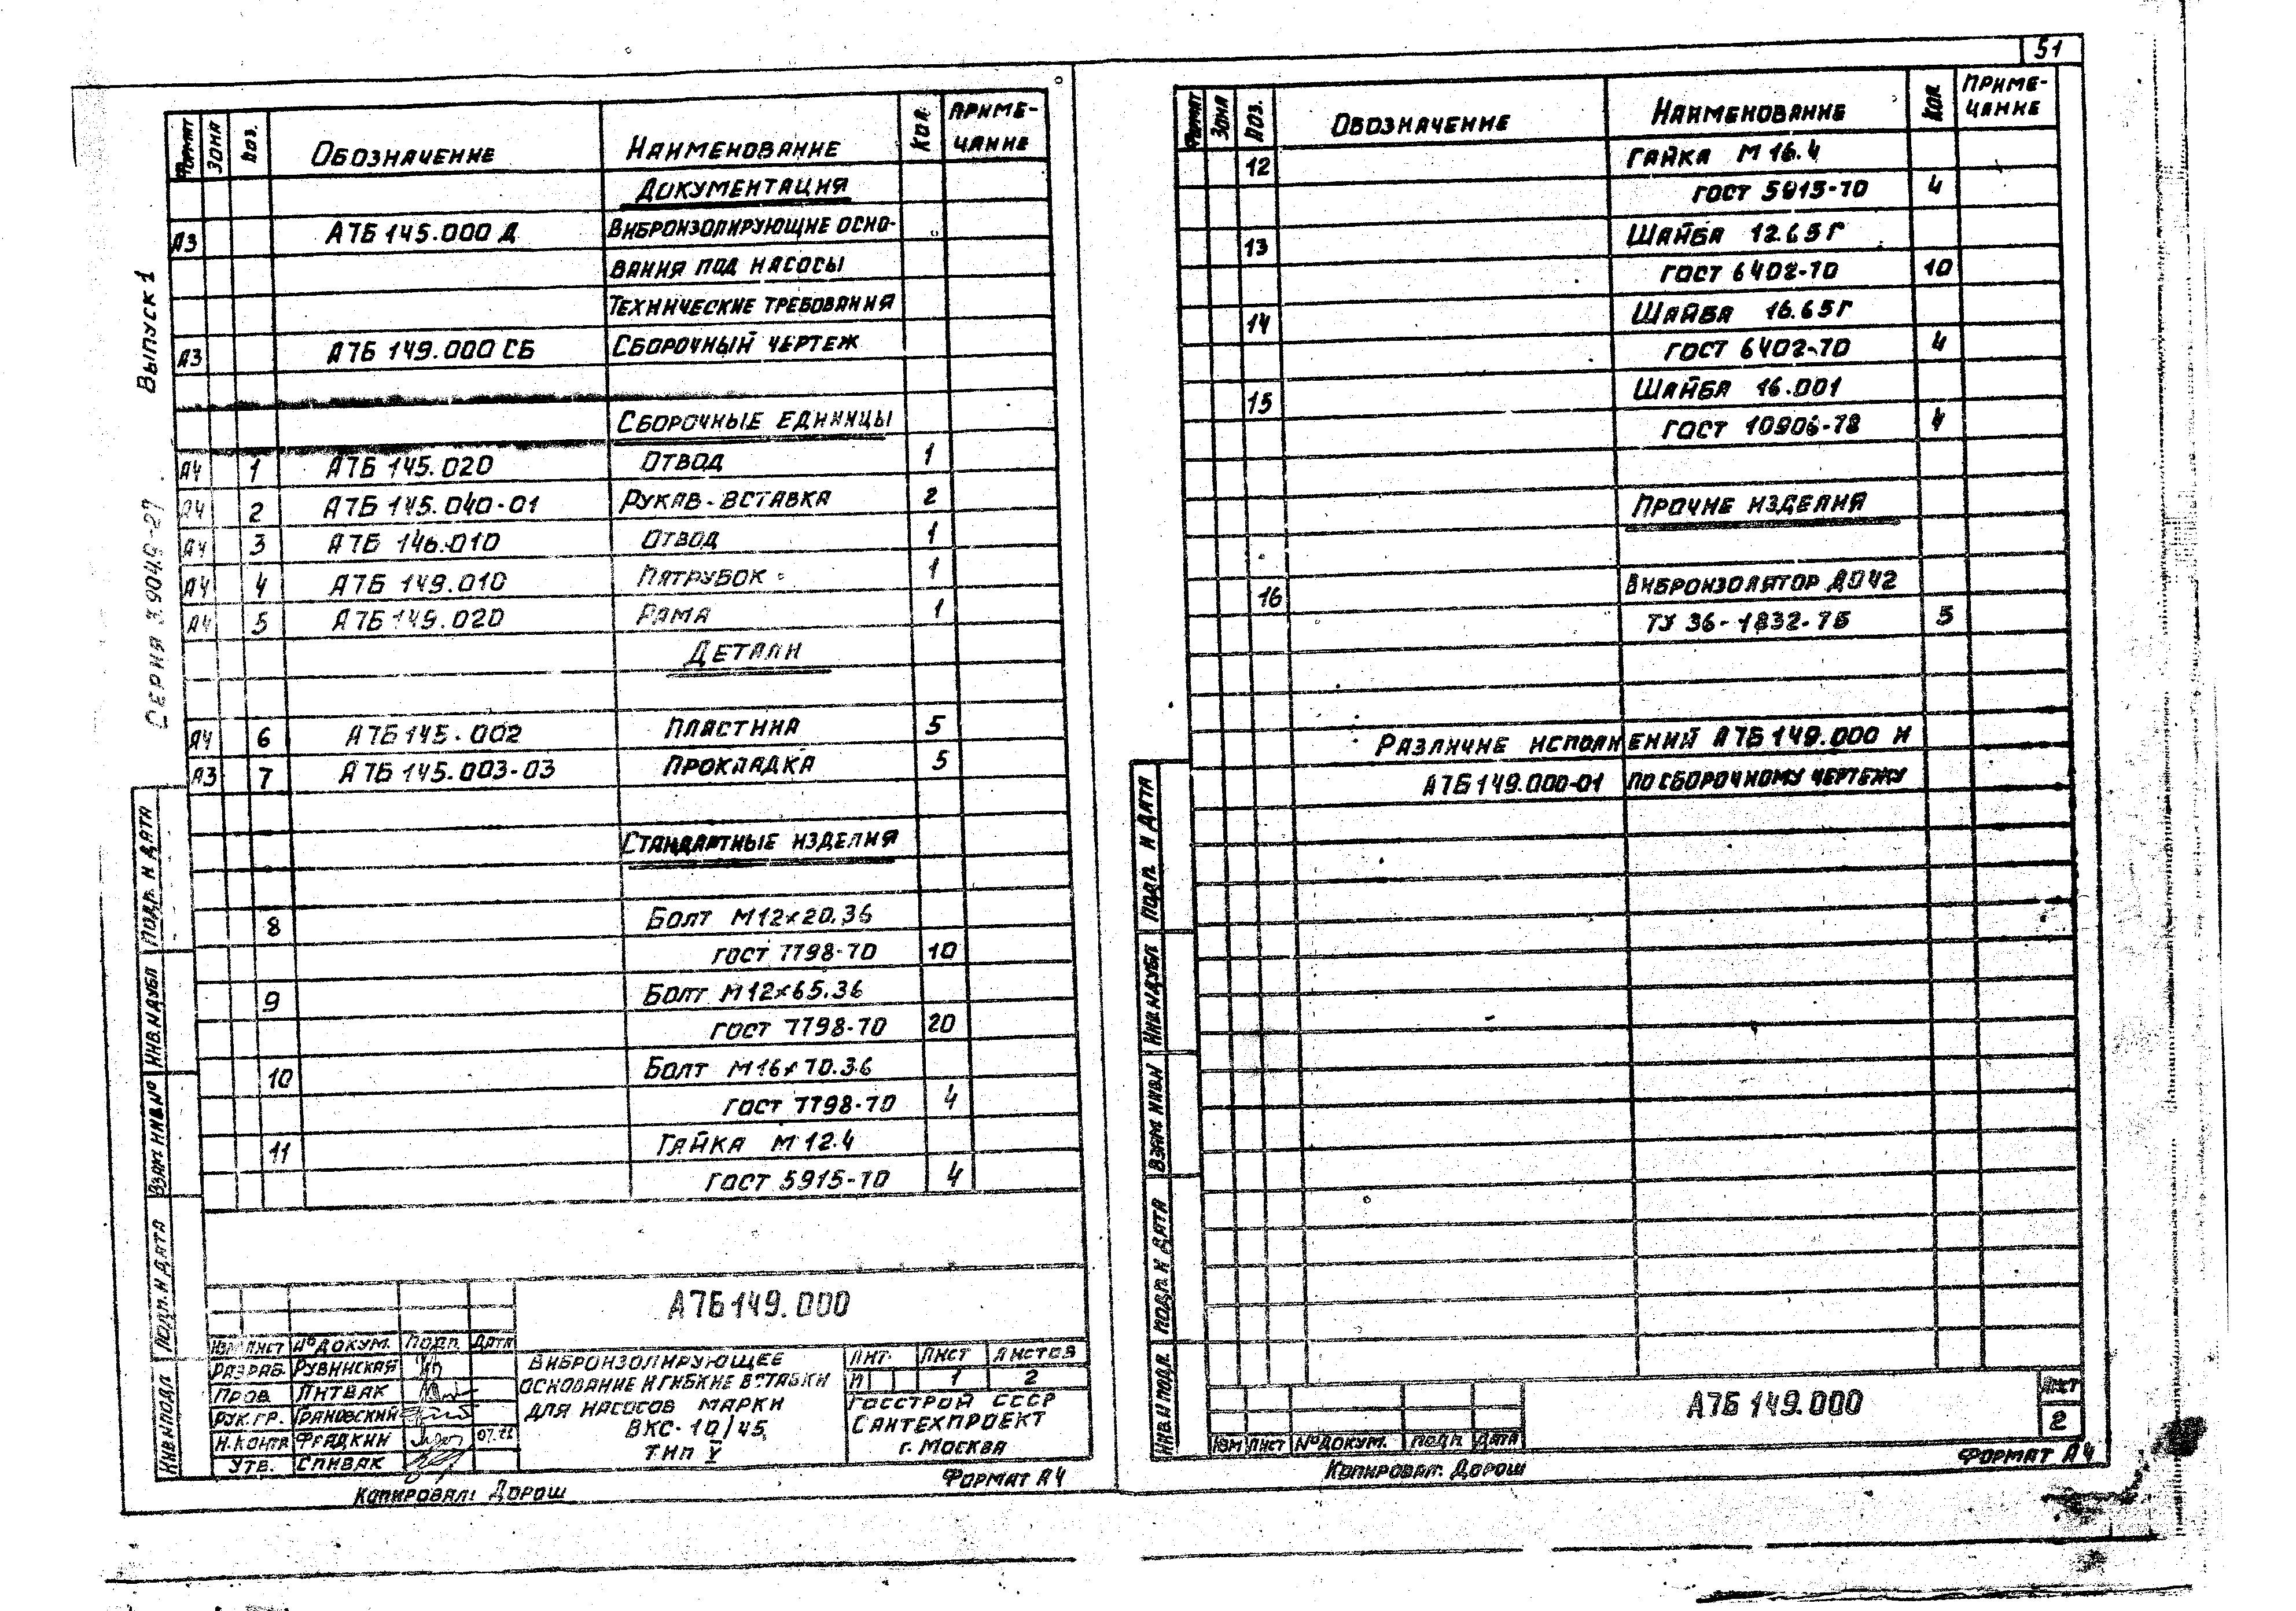 51
Серия 3.904.9-27 Выпуск 1
Формат Зона Поз. Обозначение Наименование Кол. Приме-
чание
Документация
А3 А7Б 145.000 Д Виброизолирующие осно-
вания под насосы
Технические требования
А3 А7Б 149.000 СБ Сборочный чертеж
Сборочные единицы
А4 1 А7Б 145.020 Отвод 1
А4 2 А7Б 145.040-01 Рукав-вставка 2
А4 3 А7Б 146.010 Отвод 1
А4 4 А7Б 149.010 Патрубок 1
А4 5 А7Б 149.020 Рама 1
Детали
А4 6 А7Б 145.002 Пластина 5
А3 7 А7Б 145.003-03 Прокладка 5
Стандартные изделия
8 Болт М12×20.36
ГОСТ 7798-70 10
9 Болт М12×65.36
ГОСТ 7798-70 20
10 Болт М16×70.36
ГОСТ 7798-70 4
11 Гайка М12.4
ГОСТ 5915-70 4
Подп. и дата
Инв.№дубл
Взам.инв.№
Подп. и дата
Инв.№подл
А7Б149.000
Изм Лист №докум. Подп. Дата
Разраб. Рувинская
Пров. Литвак
Рук.гр. Грановский
Н.контр Фрадкин
Утв. Спивак
Виброизолирующее
основание и гибкие вставки
для насосов марки
ВКС-10/45
тип V
Лит. Лист Листов
И 1 2
Госстрой СССР
Сантехпроект
г. Москва
Копировал: Дорош
Формат А4
Формат Зона Поз. Обозначение Наименование Кол Приме-
чание
12 Гайка М 16.4
ГОСТ 5915-70 4
13 Шайба 12.65Г
ГОСТ 6402-70 10
14 Шайба 16.65Г
ГОСТ 6402-70 4
15 Шайба 16.001
ГОСТ 10906-78 4
Прочие изделия
16 Виброизолятор ДО42
ТУ 36-1832-75 5
Различие исполнений А7Б149.000 и
А7Б149.000-01 по сборочному чертежу
Подп. и дата
Инв.№дубл
Взам инв№
Подп. и дата
Инв.№подл.
Изм Лист №докум. Подп. Дата
А7Б 149.000
Лист
2
Копировал: Дорош
Формат А4